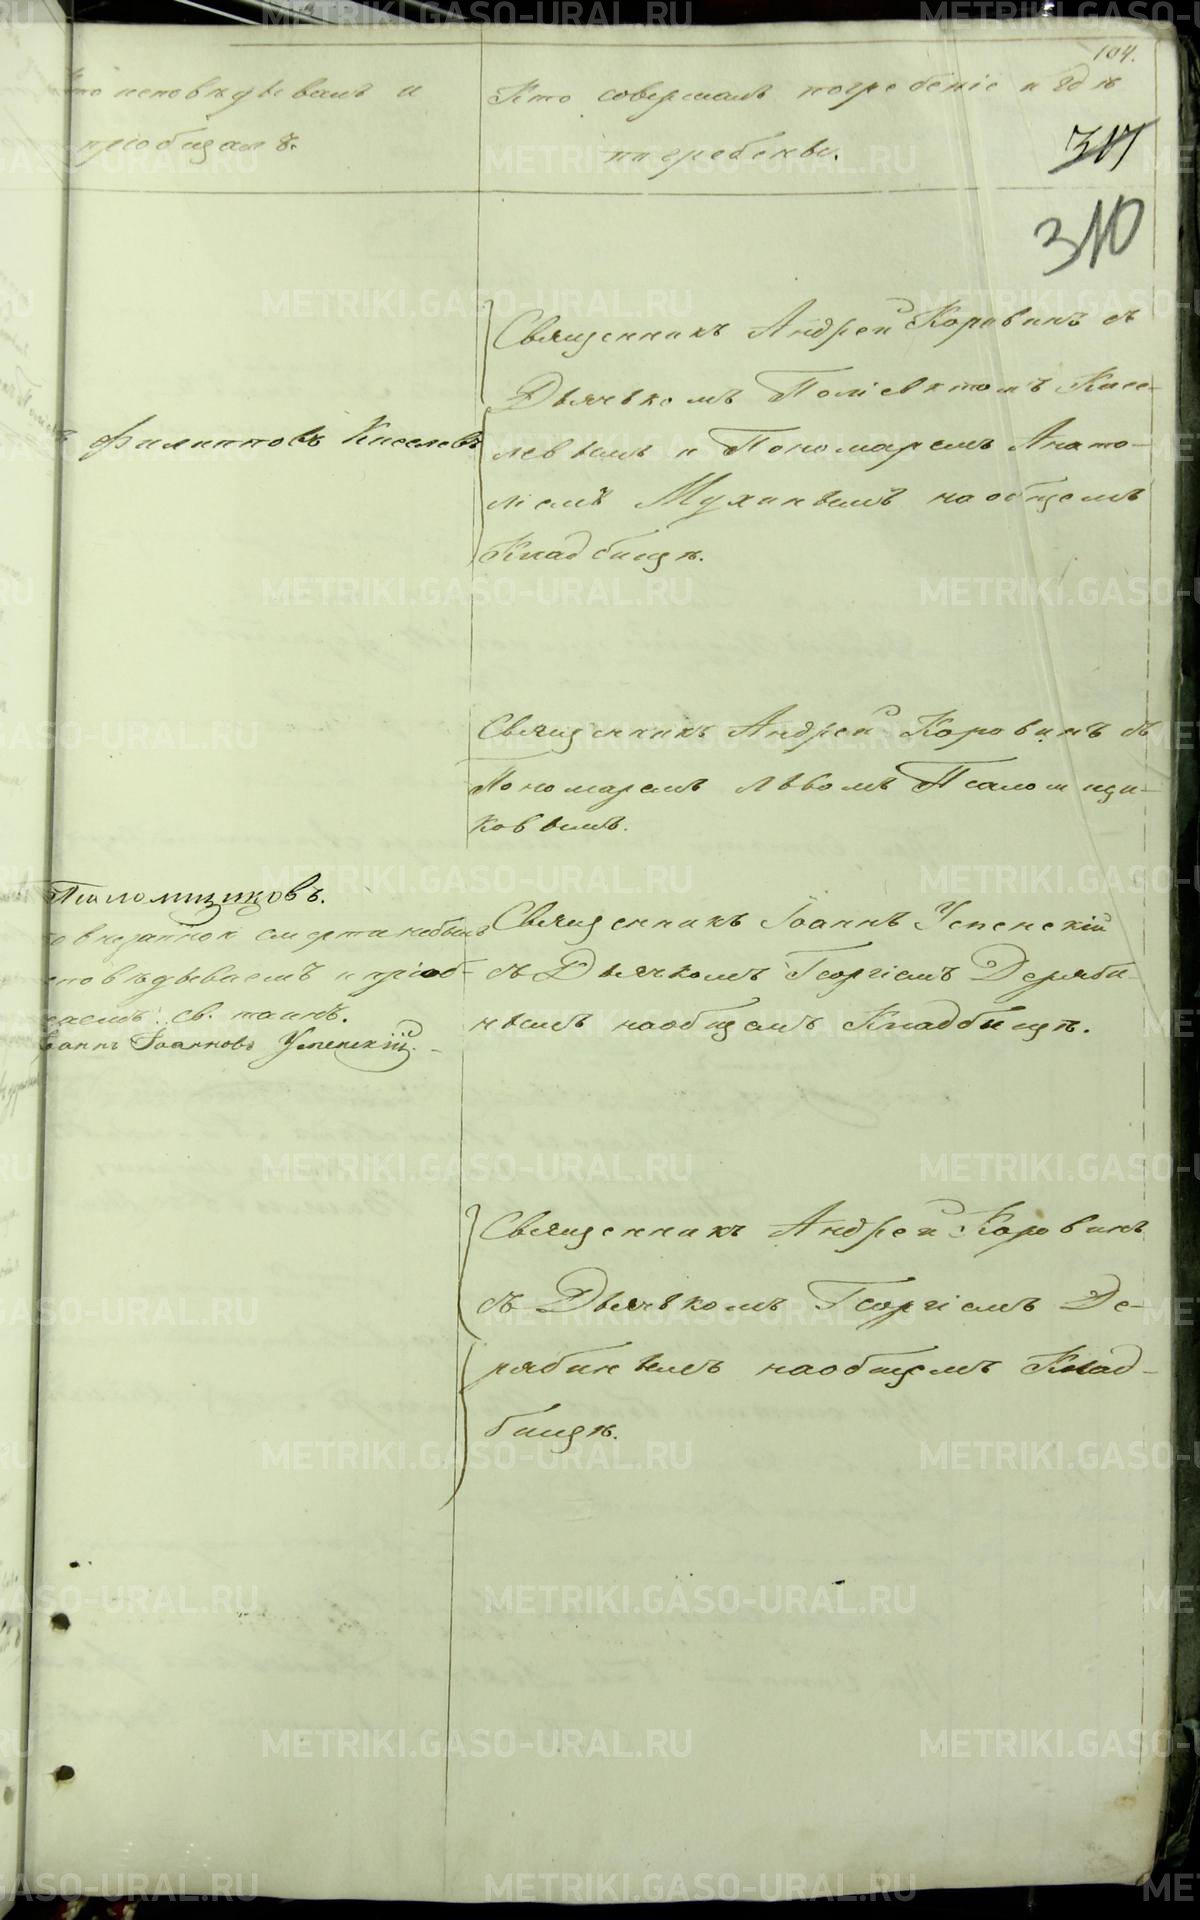 104.
исповѣдывалъ и
пріобщалъ.
Кто совершалъ погребеніе и гдѣ
погребены.
317
310
Священникъ Андрей Коровинъ съ
Дьячькомъ Поліевктомъ Кисе-
левымъ и Пономаремъ Анато-
ліемъ Мухинымъ на общемъ
Кладбищѣ.
Филипповъ Киселевъ
Священникъ Андрей Коровинъ съ
Пономаремъ Львомъ Псаломщи-
ковымъ.
Псаломщиковъ.
внезапной смерти небылъ
исповѣдываемъ и пріоб-
щаемъ св. таинъ.
Іоаннъ Іоанновъ Успенскій.
Священникъ Іоаннъ Успенскій
съ Дьячкомъ Георгіемъ Деряби-
нымъ на общемъ Кладбищѣ.
Священникъ Андрей Коровинъ
съ Дьячькомъ Георгіемъ Де-
рябинымъ на общемъ Клад-
бищѣ.
METRIKI.GASO-URAL.RU